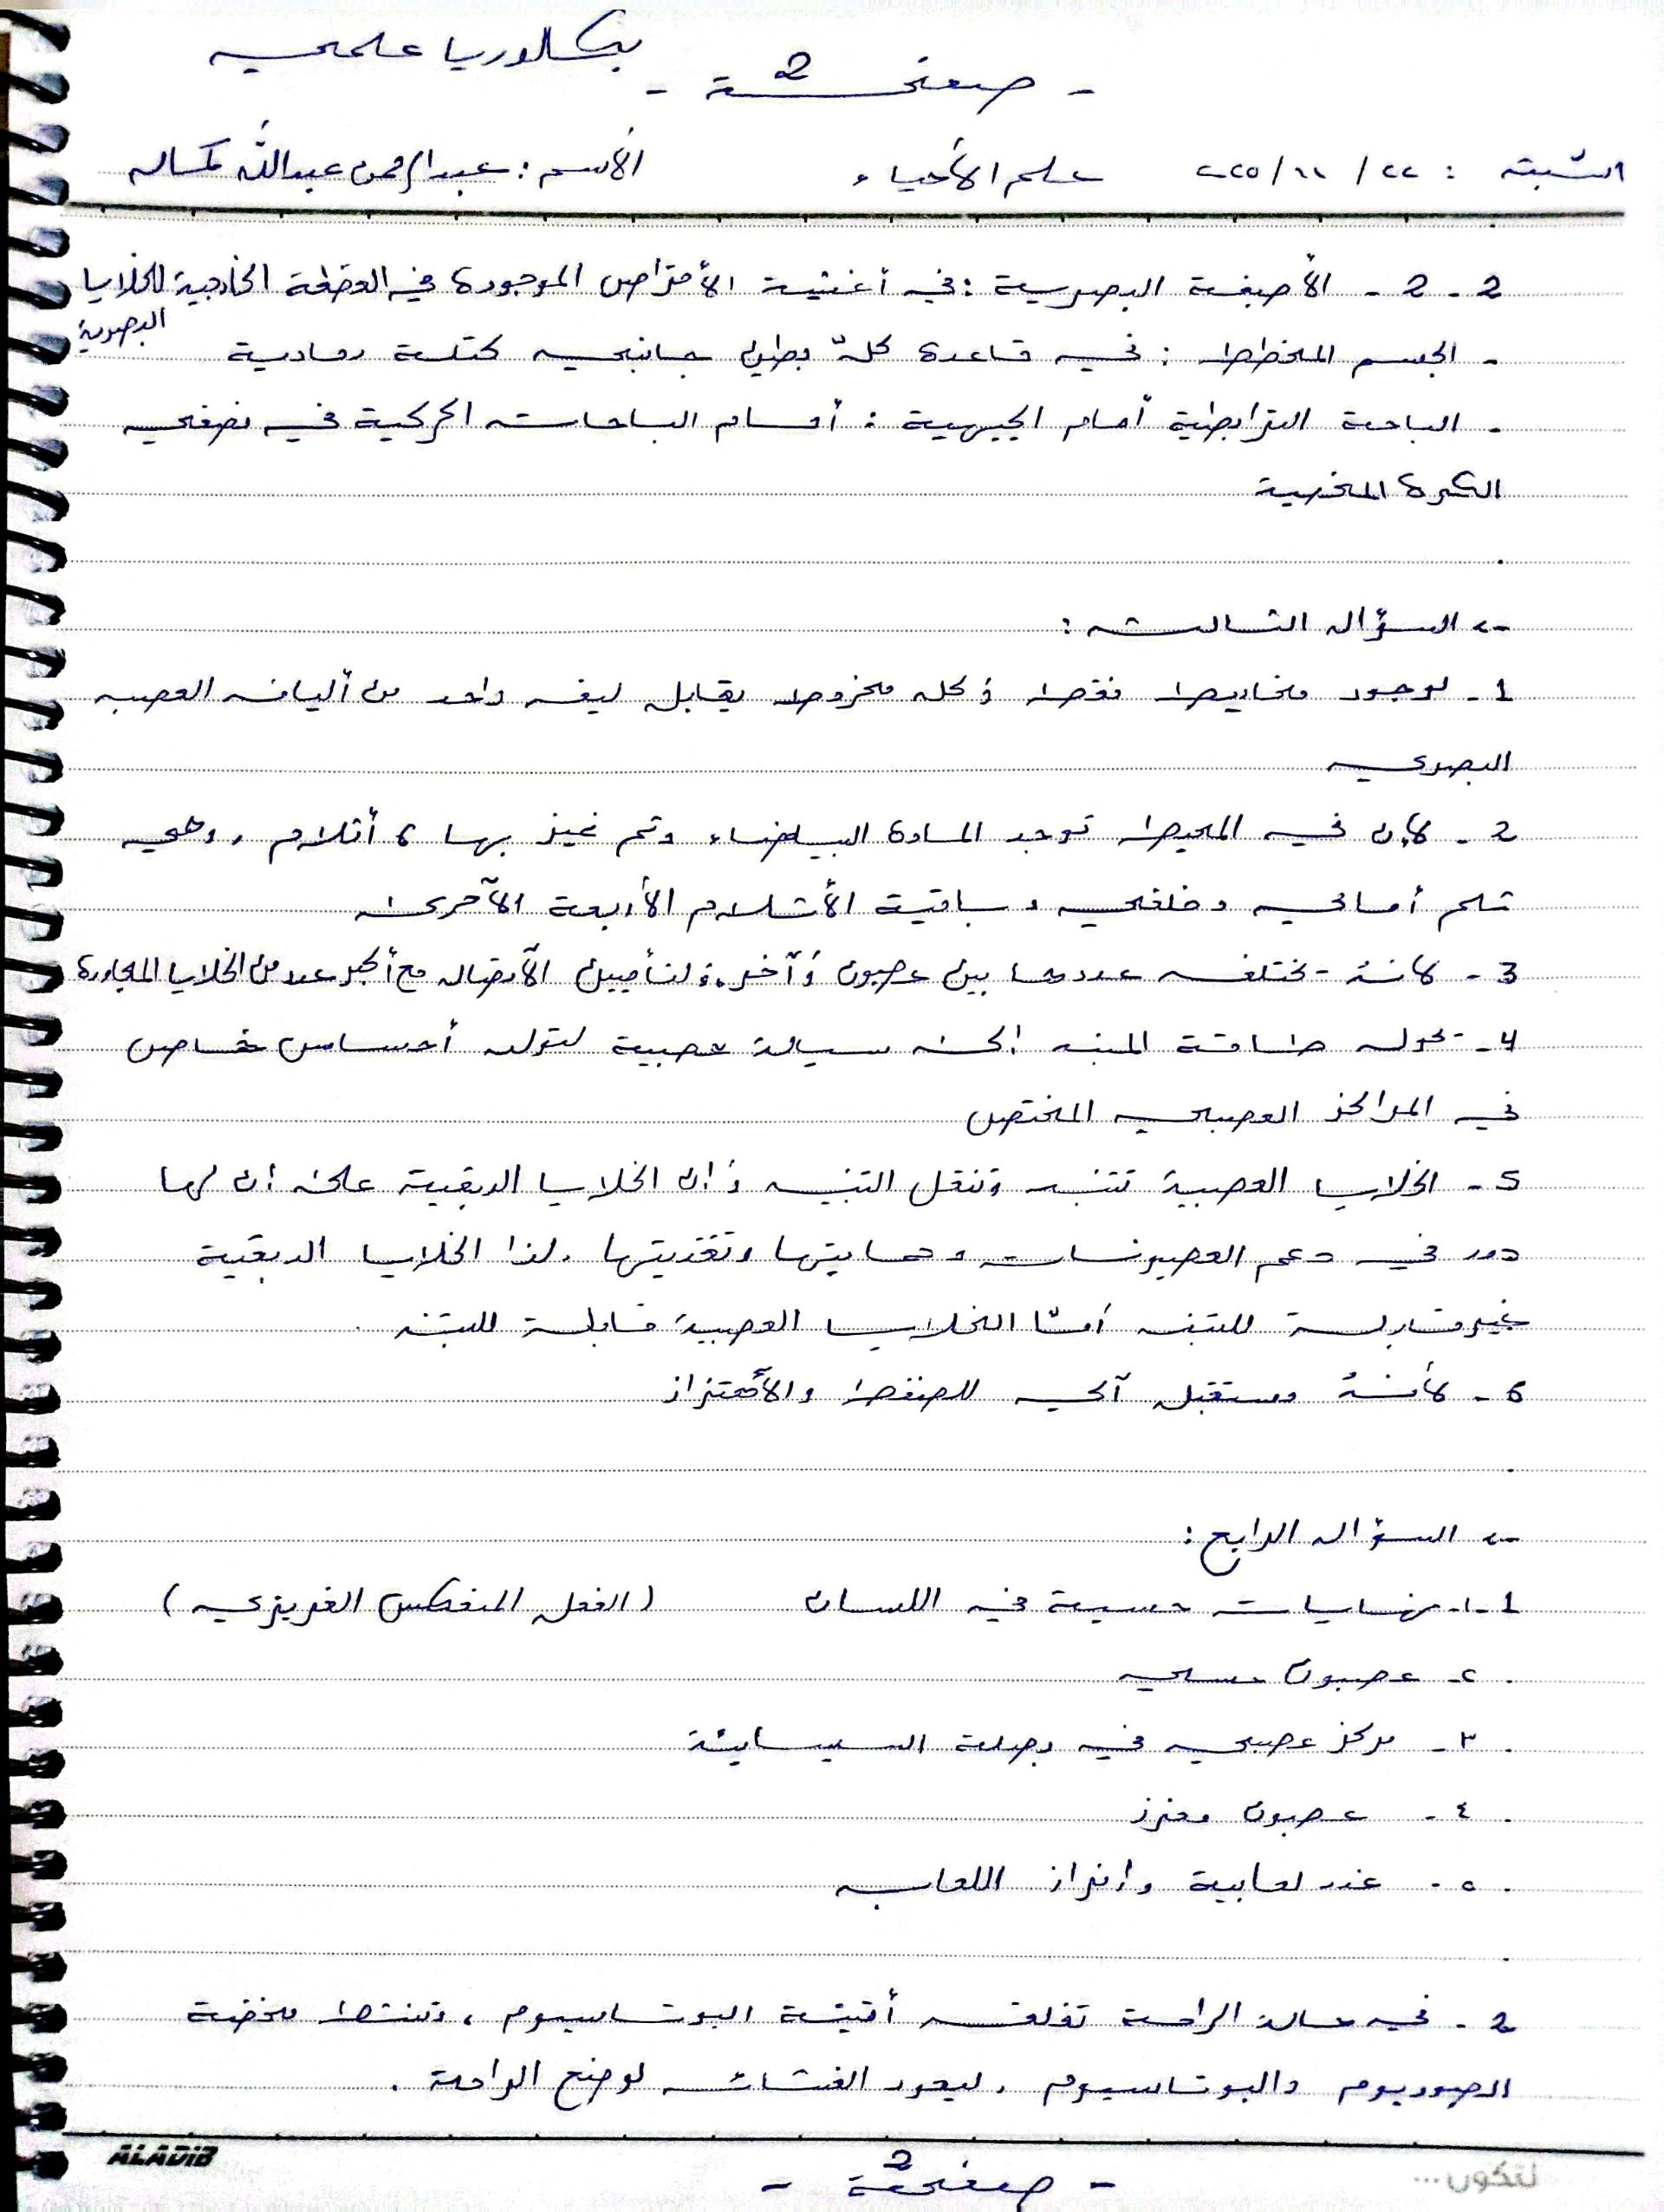 بكالوريا علمي
- صفحة 2 -
السبت : ٢٢ / ١١ / ٢٠٢٥ علم الأحياء الأسم : عبد الرحمن عبدالله
2 - 2 - الأصبغة البصرية : في أغشية الأقراص الموجودة في القطعة الخارجية للخلايا البصرية
- الجسم المخطط : في قاعدة كلّ بطين جانبي كتلة رمادية
- الباحة الترابطية أمام الجبهية : أمام الباحات الحركية في نصفي
الكرة المخية
السؤال الثالث :
1 - لوجود مخاريط فقط و كل مخروط يقابل ليف واحد من ألياف العصب
البصري
2 - لأن في المحيط توجد المادة البيضاء وتم نميز بها ٦ أثلام ، وهي
ثلم أمامي وخلفي و باقية الأثلام الأربعة الآخرى
3 - لأنهُ تختلف عددها بين عصبون وَآخر، ولتأمين الأتصال مع أكبر عدد من الخلايا المجاورة
4 - تحول طاقة المنبه الى سيالة عصبية لتولد أحساس خاص
في المراكز العصبي المختص
5 - الخلايا العصبية تتنبه وتنقل التنبيه و ان الخلايا الدبقية على ان لها
دور في دعم العصبونات و حمايتها وتغذيتها . لذا الخلايا الدبقية
غير قابلة للتنبه أمّا الخلايا العصبية قابلة للتنبه .
6 - لأنهُ مستقبل آلي للضغط والأهتزاز
السؤال الرابع :
1 - ١- نهايات حسية في اللسان (الفعل المنعكس الغريزي)
٢ - عصبون حسي
٣ - مركز عصبي في بصلة السيسائية
٤ - عصبون مفرز
٥ - غدد لعابية وإفراز اللعاب
2 - في حالة الراحة تغلق أقنية البوتاسيوم ، وتنشط مضخة
الصوديوم والبوتاسيوم . ليعود الغشاء لوضع الراحة .
ALADIB
لتكون ...
- صفحة 2 -